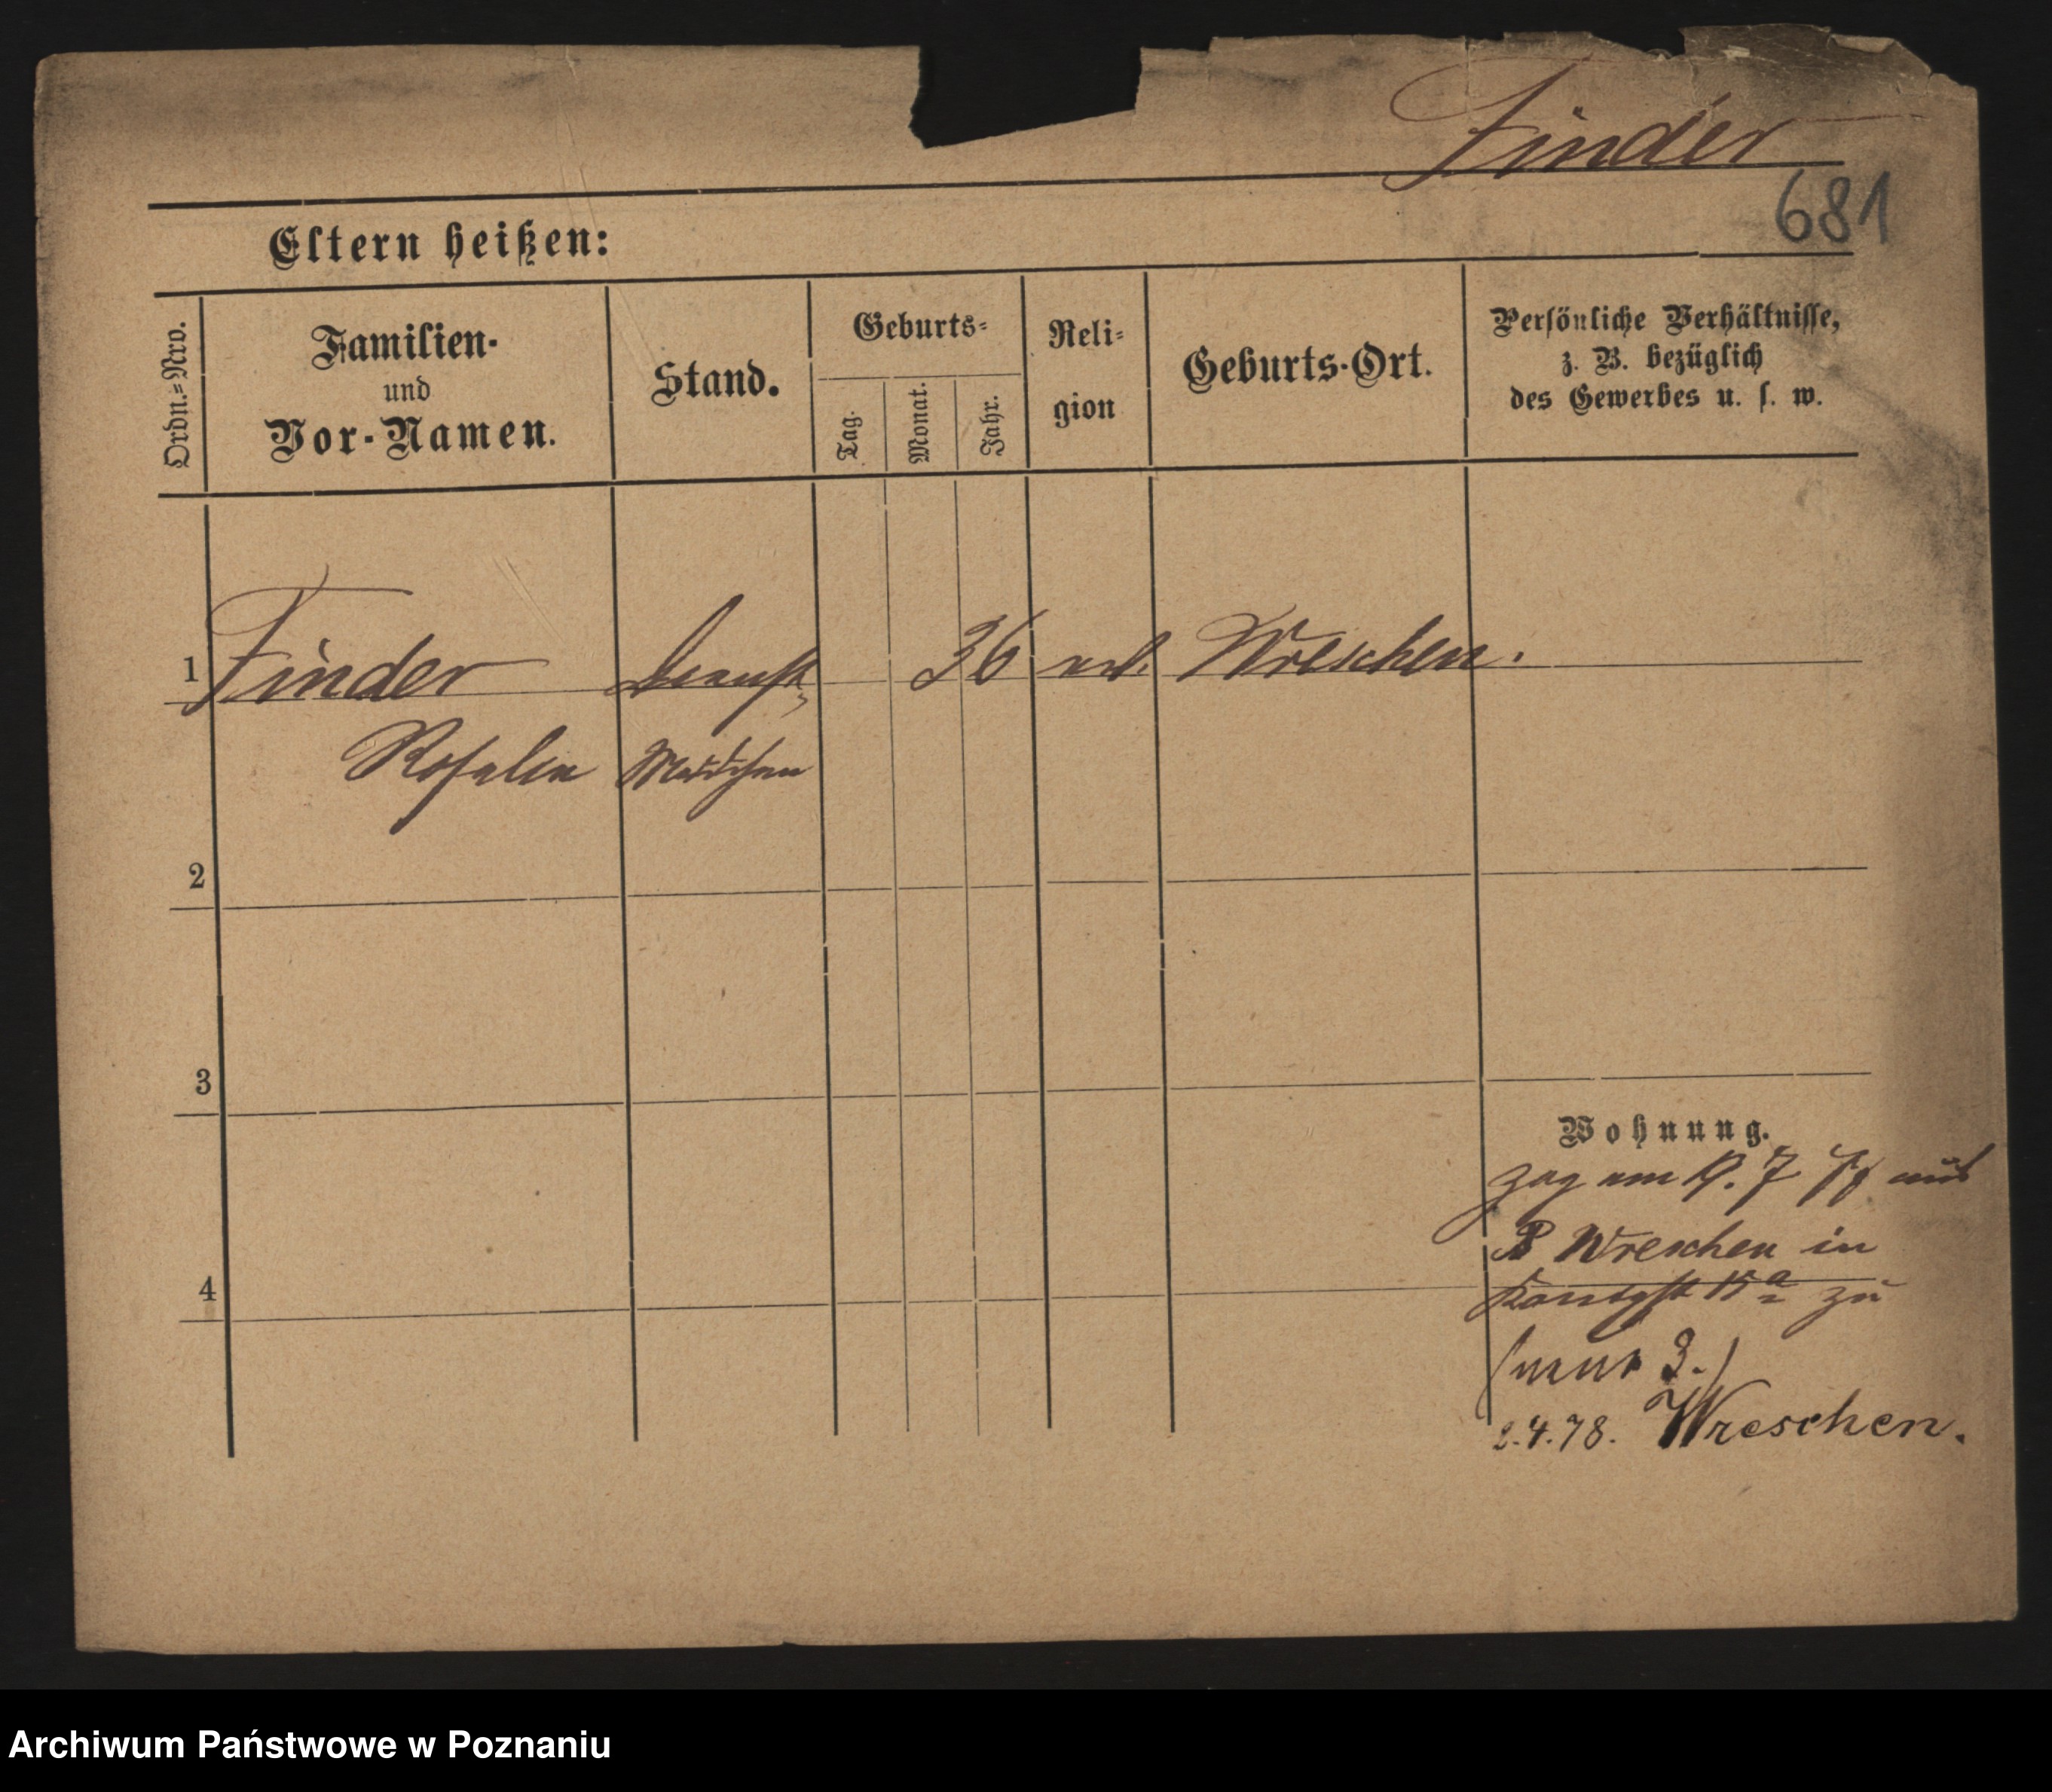 Finder
681
Eltern heißen:
Ordn.=Nro.
Familien-
und
Vor-Namen.
Stand.
Geburts=
Tag.
Monat.
Jahr.
Reli=
gion
Geburts-Ort.
Persönliche Verhältnisse,
z. B. bezüglich
des Gewerbes u. s. w.
1 Finder Dienst 36 Wreschen.
Rosalia Mädchen
2
3
4
Wohnung.
zog am 7
Wreschen in
zu
2.4.78. Wreschen.
Archiwum Państwowe w Poznaniu